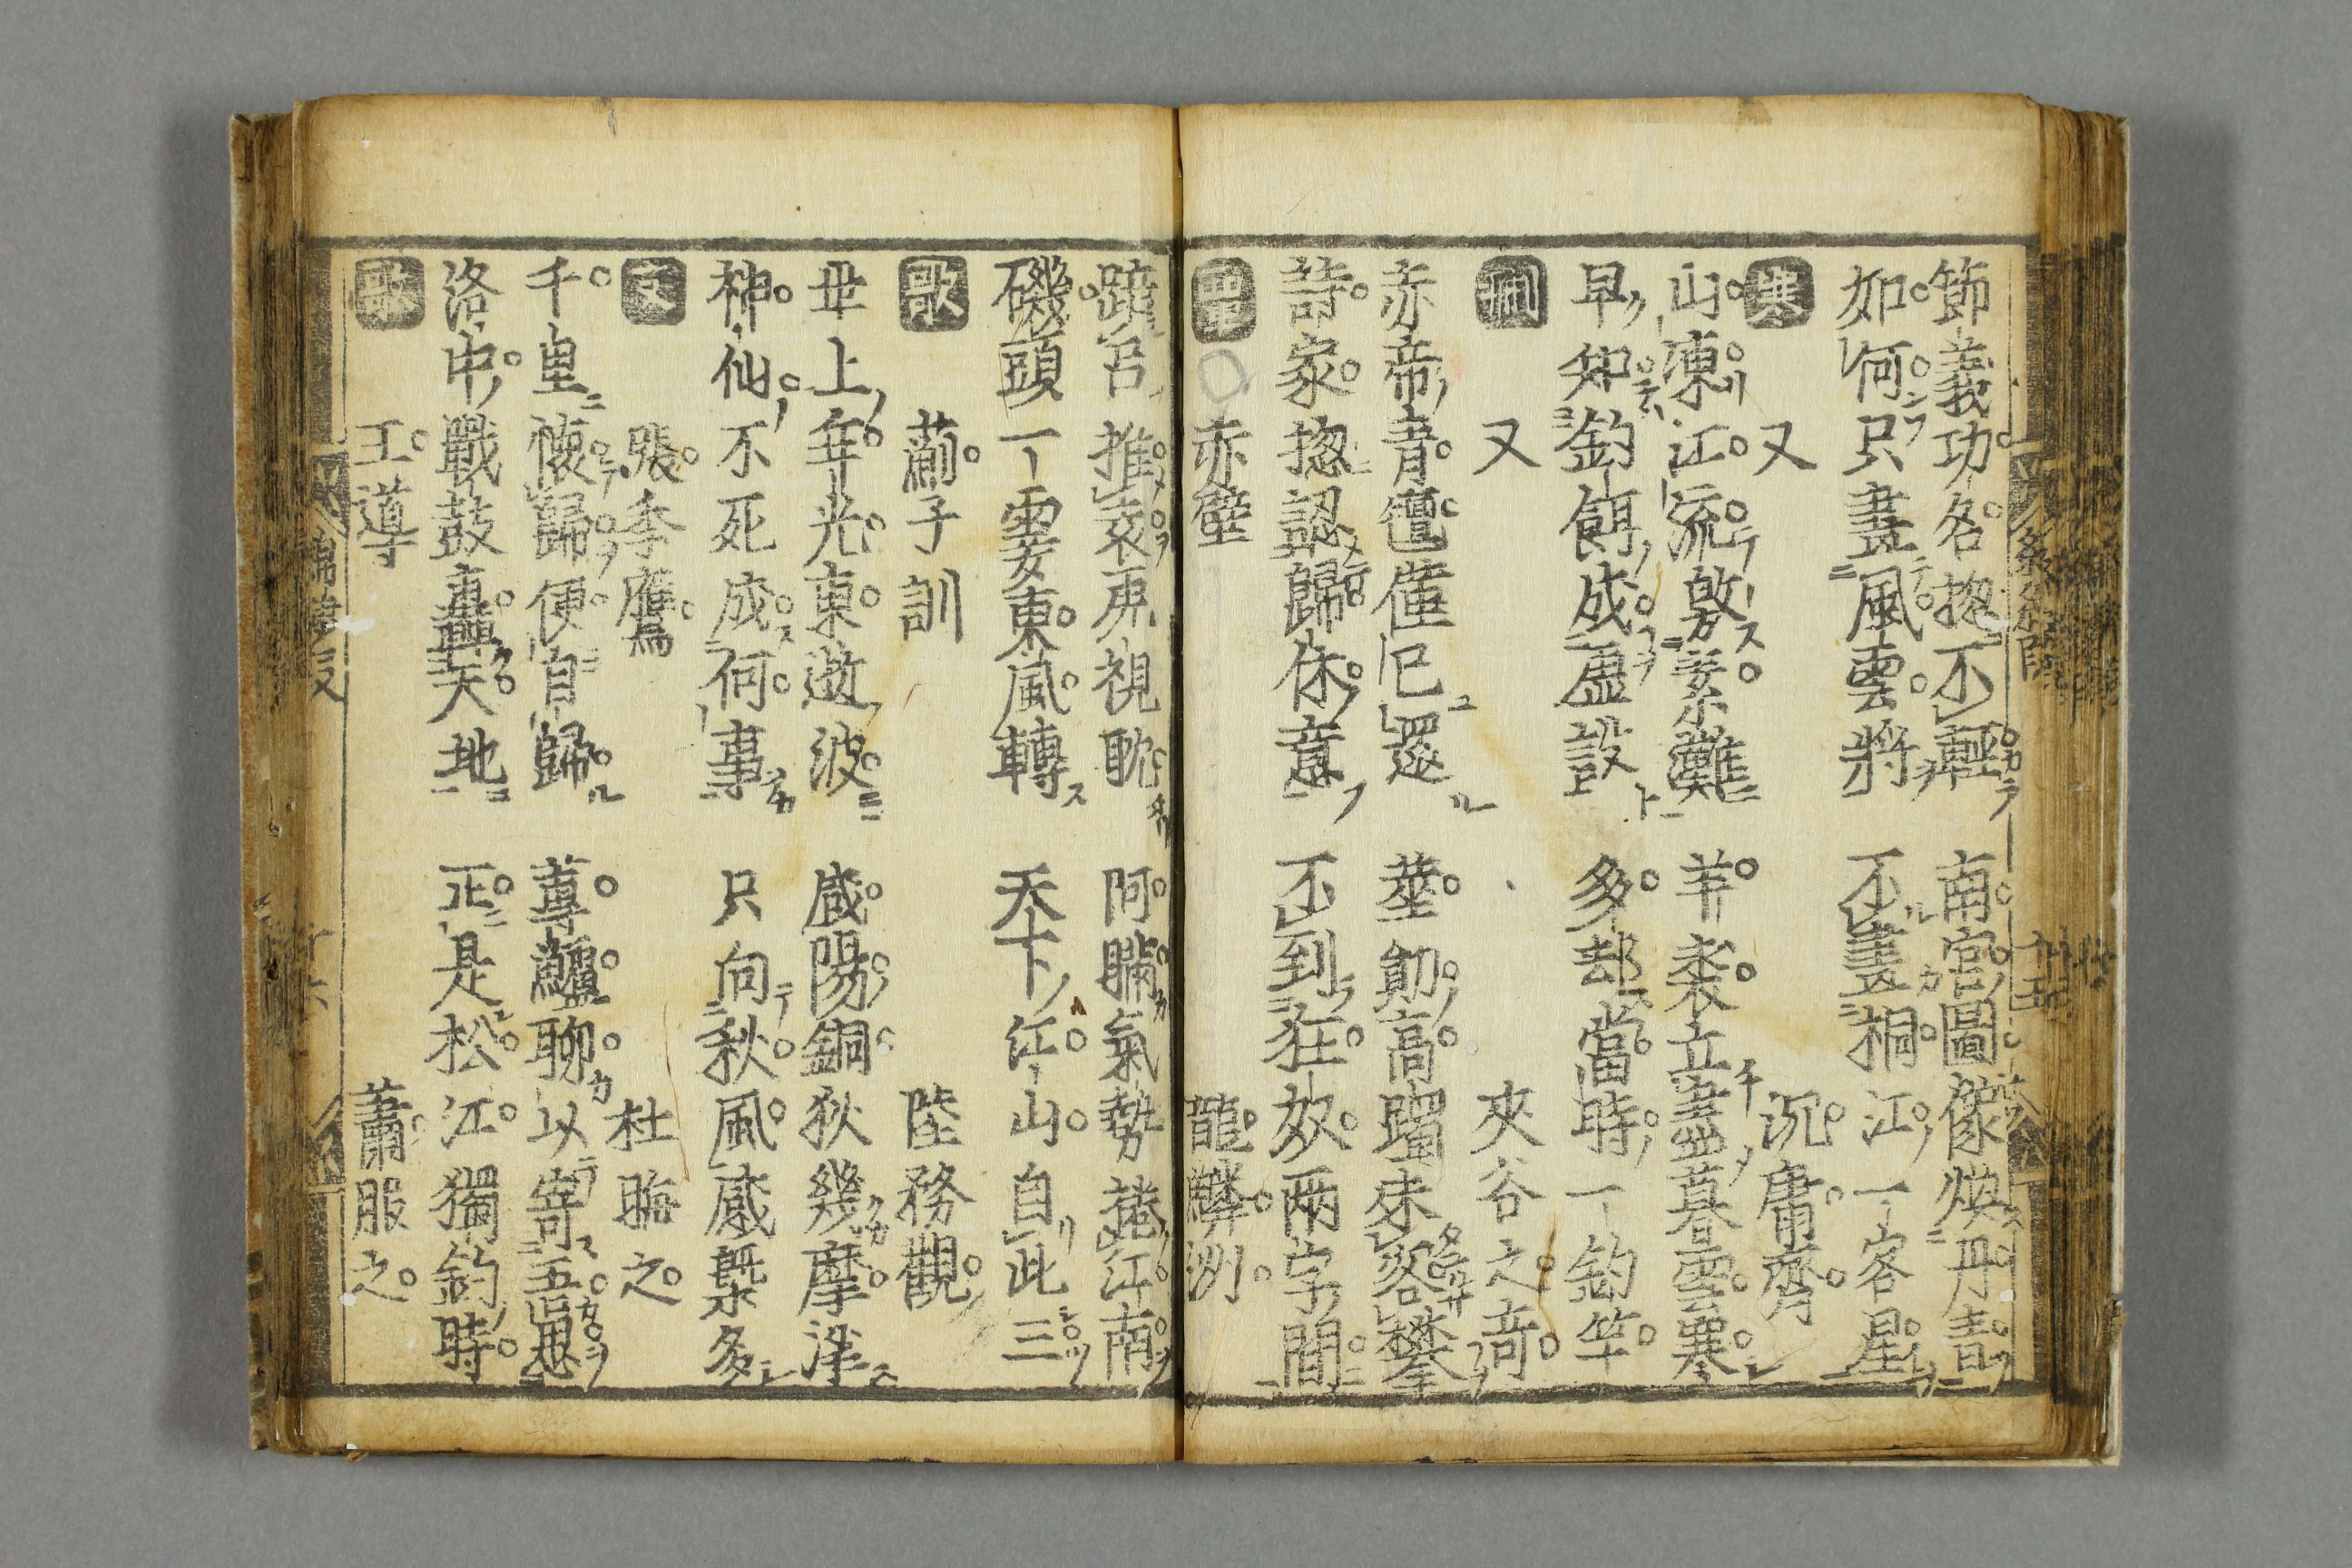 節義功名揔不輕　南宮圖像煥丹青
如何只畫風雲將　不畫桐江一客星
寒　又　沉庸齋
山凍江流激素難　羊裘立盡暮雲寒
早知釣餌成虛設　多却當時一釣竿
刪　又　夾谷之奇
赤帝青氊僅已還　莘勛高躅未容攀
詩家揔認歸休意　不到狂奴兩字間
覃　赤壁　龍麟洲
踏呂推袁虎視眈　阿瞞氣勢捲江南
磯頭一霎東風轉　天下江山自此三
歌　薊子訓　陸務觀
丗上年光東逝波　咸陽銅狄幾摩挲
神仙不死成何事　只向秋風感槩多
支　張季鷹　杜晦之
千里懷歸便自歸　蓴鱸聊以寄吾思
洛中戰鼓轟天地　正是松江獨釣時
歌　王導　蕭服之